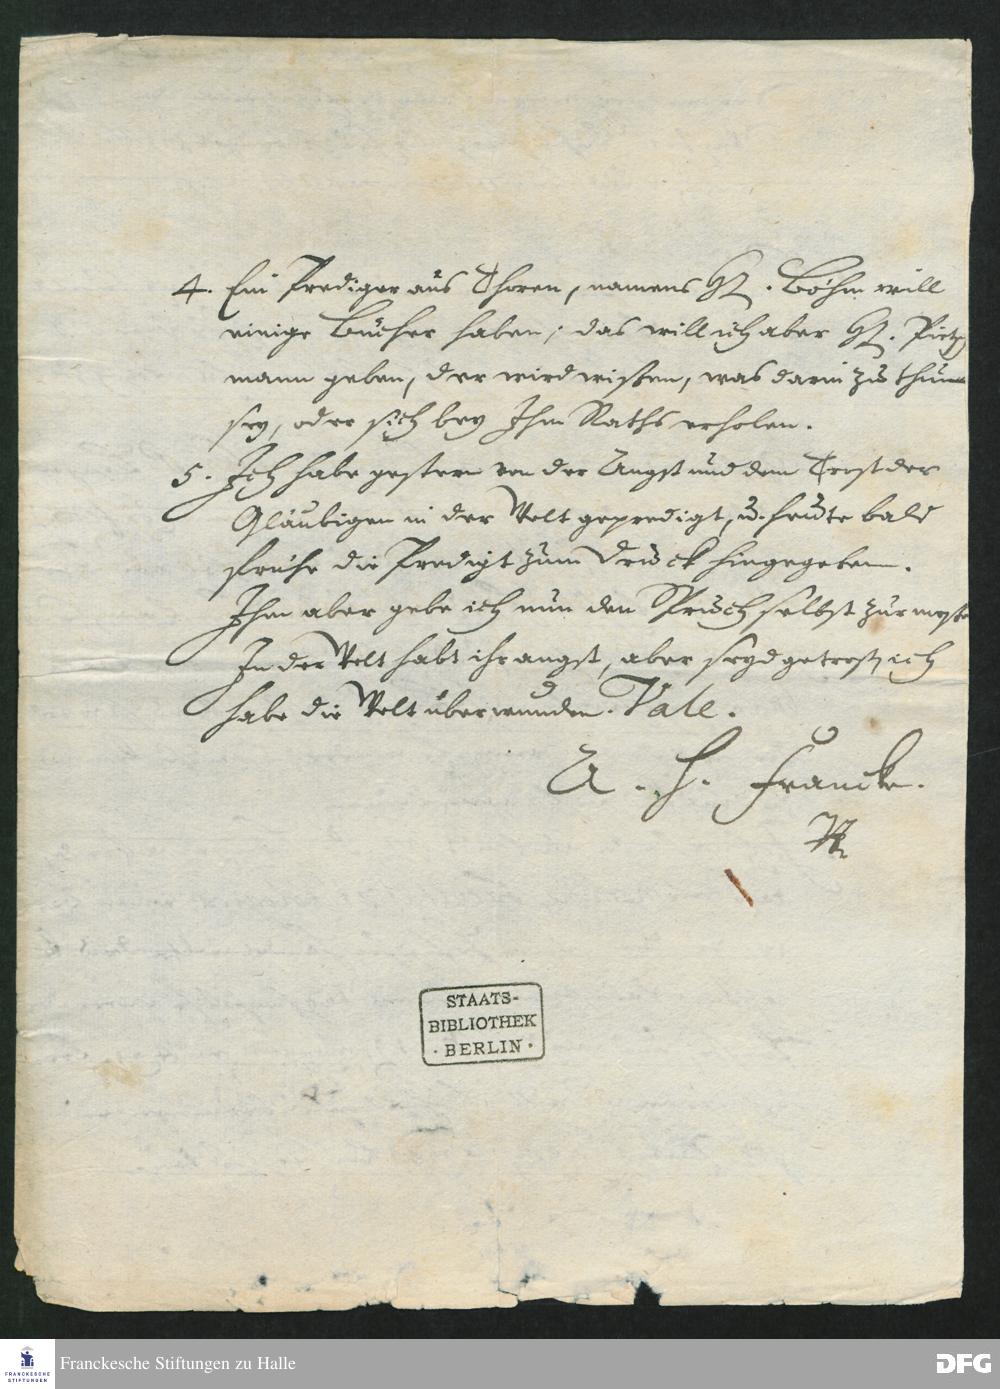 4. Ein Prediger aus Thoren, namens H. Böhm will
einige Bücher haben; das will ich aber H. Pietz
mann geben, der wird wißen, was darin zu thun
sey, oder sich bey Ihm Raths erholen.
5. Ich habe gestern von der Angst und dem Trost der
Gläubigen in der Welt gepredigt, u. heute bald
fruhe die Predigt zum Druck hingegeben.
Ihm aber gebe ich nun den Spruch selbst zur
In der Welt habt ihr angst, aber seyd getrost, ich
habe die Welt überwunden. Vale.
A. H. Francke.
STAATS-
BIBLIOTHEK
· BERLIN ·
FRANCKESCHE
STIFTUNGEN
Franckesche Stiftungen zu Halle
DFG